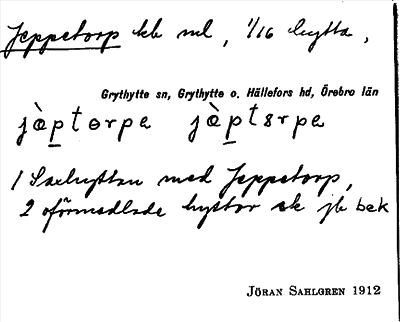 Jeppetorp kb ml, 1/16 hytta,
Grythytte sn, Grythytte o. Hällefors hd, Örebro län
jàptorpa jàptɞrpa
1 Saxhyttan med Jeppetorp,
2 oförmedlade hyttor sk jb bek
JÖRAN SAHLGREN 1912